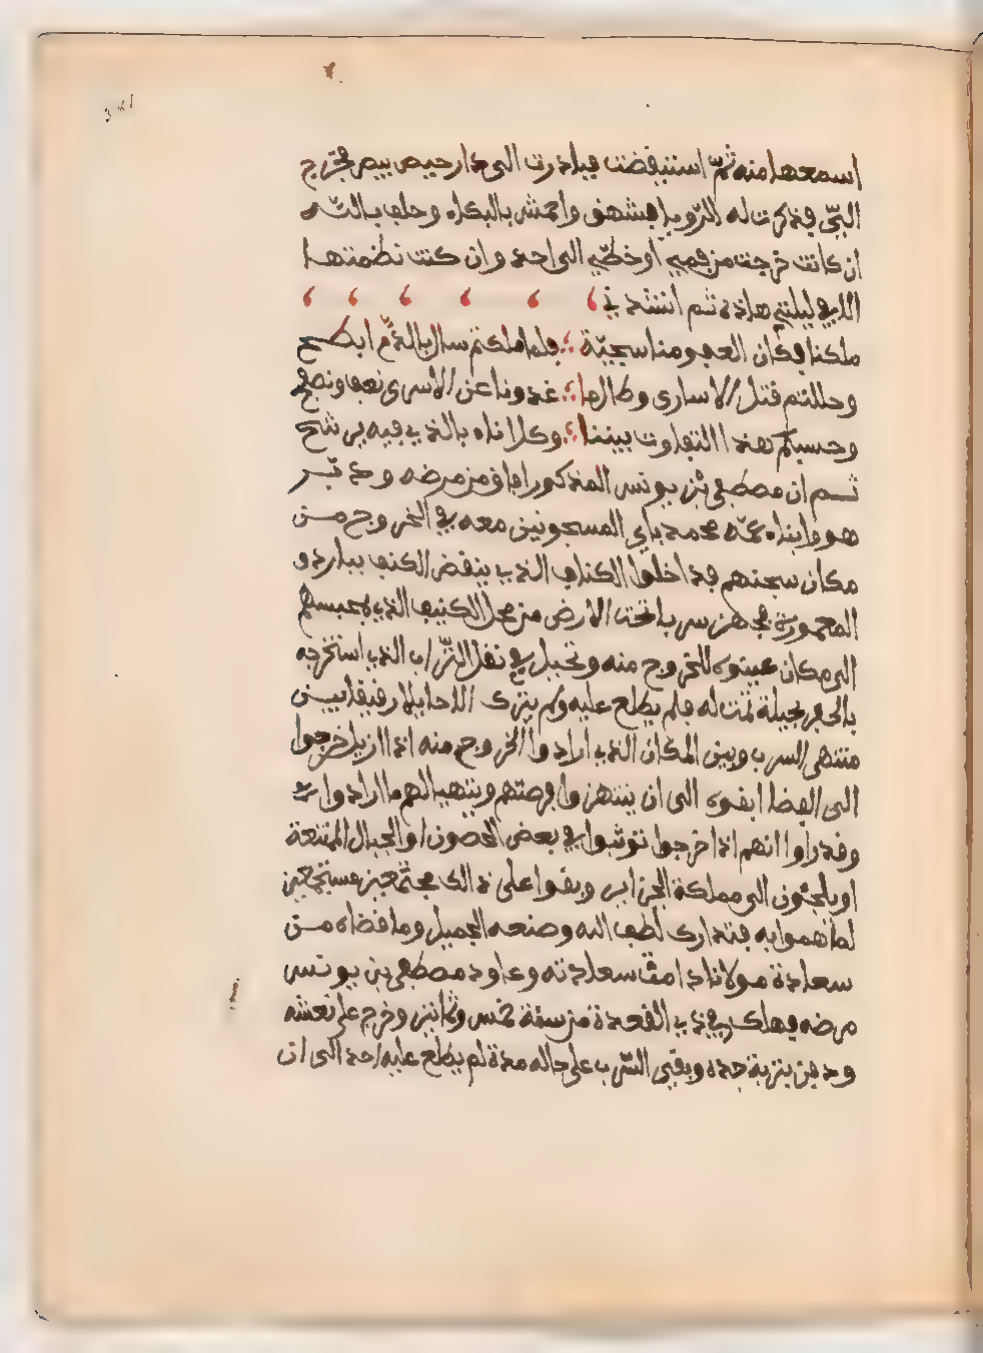 341
اسمعها منه ثمّ استيقضت فبادرت الى دار حيص بيص فخرج
اليّ فذكرت له الرّويا فشهق واجهش بالبكاء وحلف بالله
ان كانت خرجت من فمي او خطّي الى احد وان كنت نظمتها
الا في ليلتي هاذه ثم انشدني
ملكنا فكان العفو منا سجيّة فلما ملكتم سال بالدّم ابطح
وحللتم قتل الاسارى وطالما غدونا عن الاسرى نعف ونصفح
وحسبكم هذا التفاوت بيننا وكل اناء بالذي فيه يرشح
ثم ان مصطفى بن يونس المذكور افاق من مرضه ودبّر
هو وابناء عمّه محمد باي المسجونين معه في الخروج من
مكان سجنهم فداخلوا الكناف الذي ينقض الكنف بباردو
المعمورة فجهز سربا تحت الارض من محل الكنيف الذي بمحبسهم
الى مكان عينوه للخروج منه وتحيل في نقل التّراب الذي استخرجه
بالحفر بحيلة تمت له فلم يطلع عليه ولم يترك الا حايلا رقيقا بين
منتهى السرب وبين المكان الذي ارادوا الخروج منه اذا ازيل خرجوا
الى الفضا ابقوه الى ان ينتهزوا فرصتهم ويتهيا لهم ما ارادوا
وقد راوا انهم اذا خرجوا توثبوا في بعض الحصون او الجبال الممتنعة
او يلجئون الى مملكة الجزاير وبقوا على ذالك مجتمعين مستجمعين
لما هموا به فتدارك لطف الله وصنعه الجميل وما قضاه من
سعادة مولانا دامت سعادته وعاود مصطفى بن يونس
مرضه فهلك في ذي القعدة من سنة خمس وثمانين وخرج على نعشه
ودفن بتربة جده وبقي السّرب على حاله مدة لم يطلع عليه احد الى ان